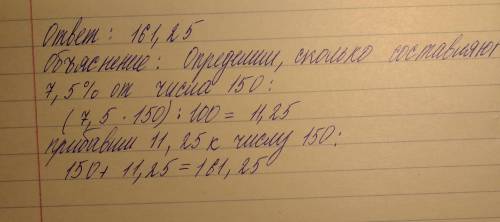 Ответ: 161,25
Объяснение: Определим, сколько составляют
7,5% от числа 150:
(7,5 · 150) : 100 = 11,25
прибавим 11,25 к числу 150:
150 + 11,25 = 161,25